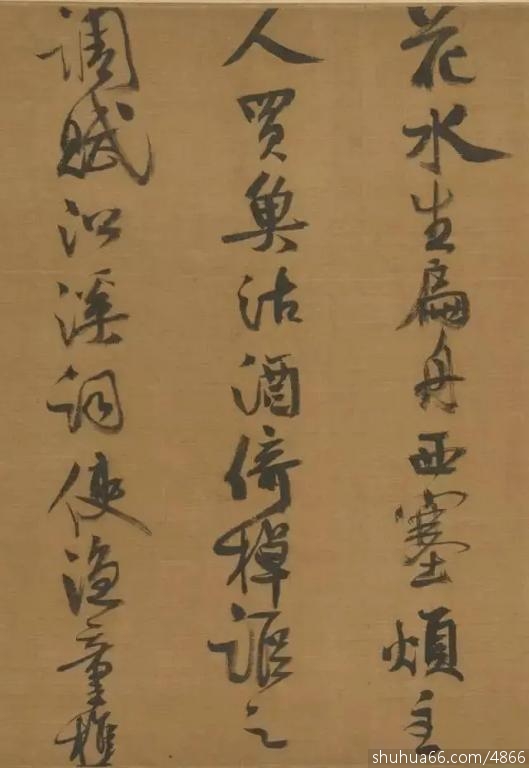 花水生扁舟西塞煩主
人買魚沽酒倚棹謳之
調賦沿溪詞使漁童樵
shuhua66.com/4866